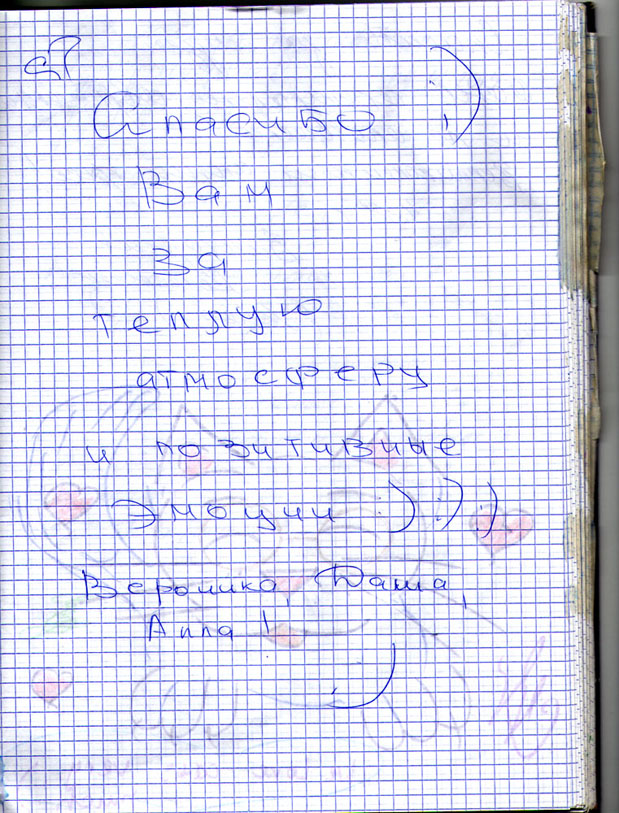 Спасибо :)
Вам
за
теплую
атмосферу
и позитивные
эмоции :) :) :)
Вероника, Даша,
Анна!